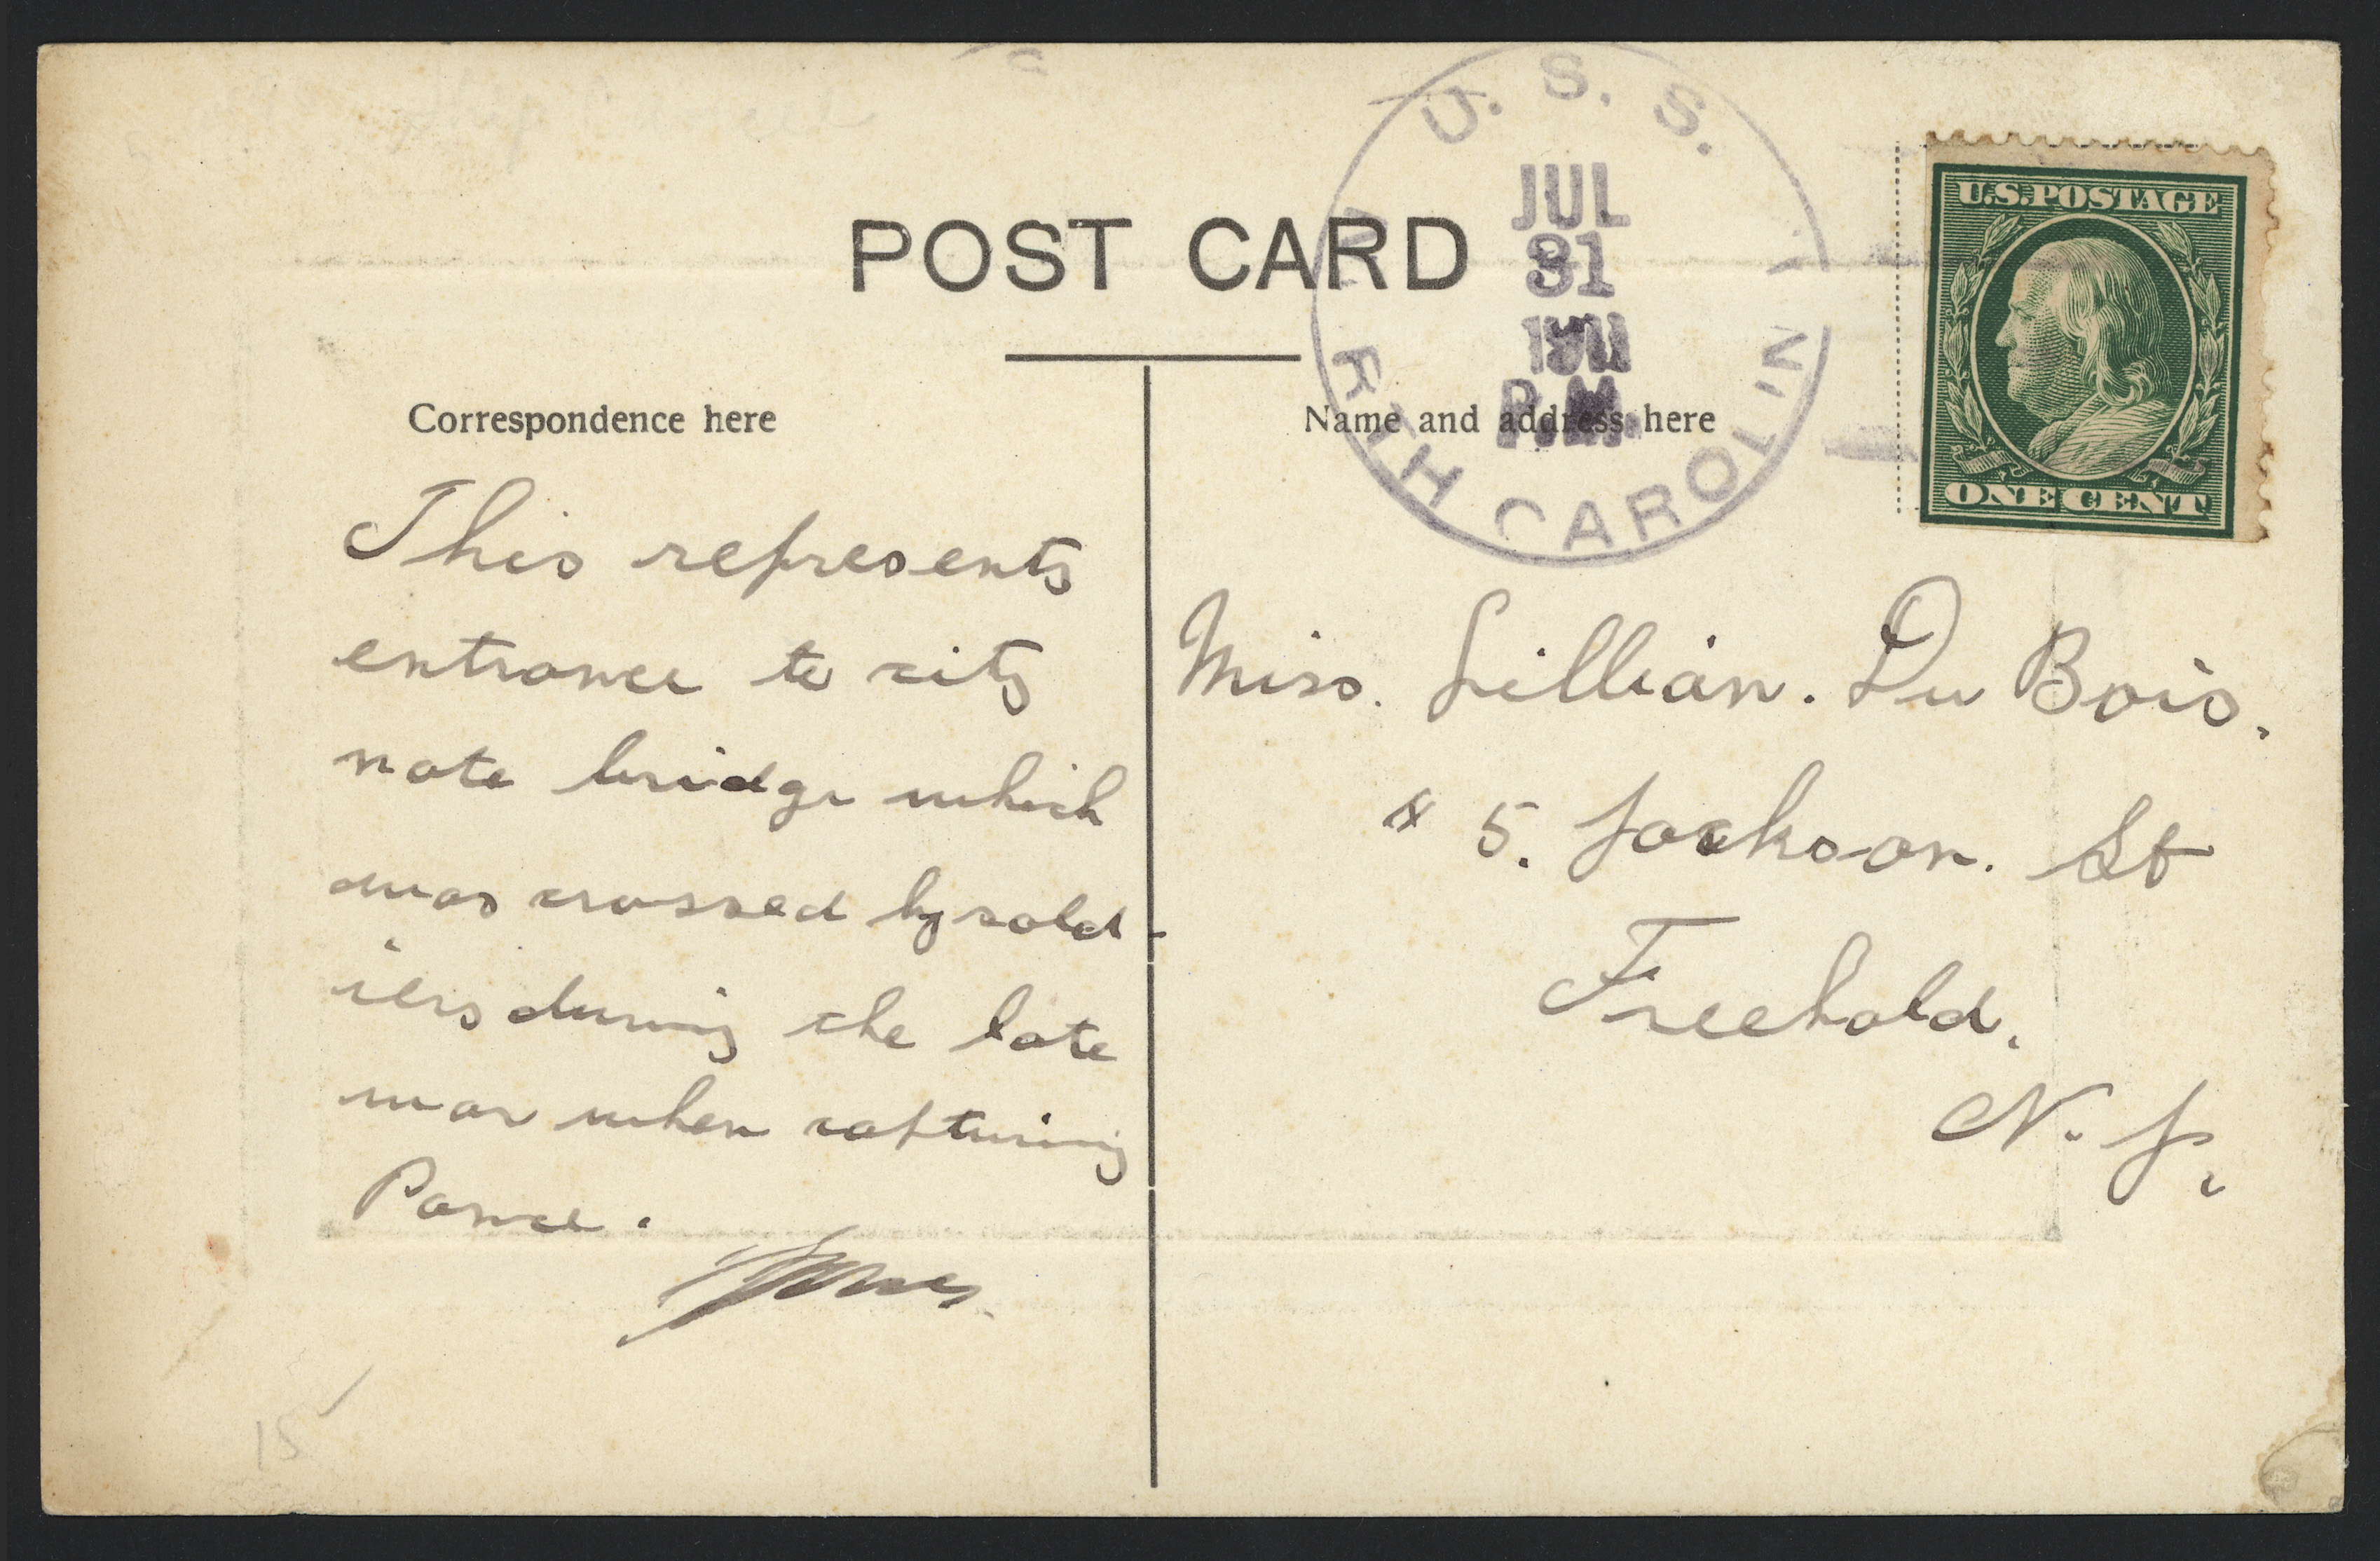 U. S. S.
JUL
31
1911
P.M.
RTH CAROLIN
U.S. POSTAGE
ONE CENT
POST CARD
Correspondence here
Name and address here
This represents
entrance to city
note bridge which
was crossed by sold-
iers during the late
war when capturing
Ponce.
Miss. Lillian. Du Bois.
# 5. Jackson. St
Freehold.
N. J.
15